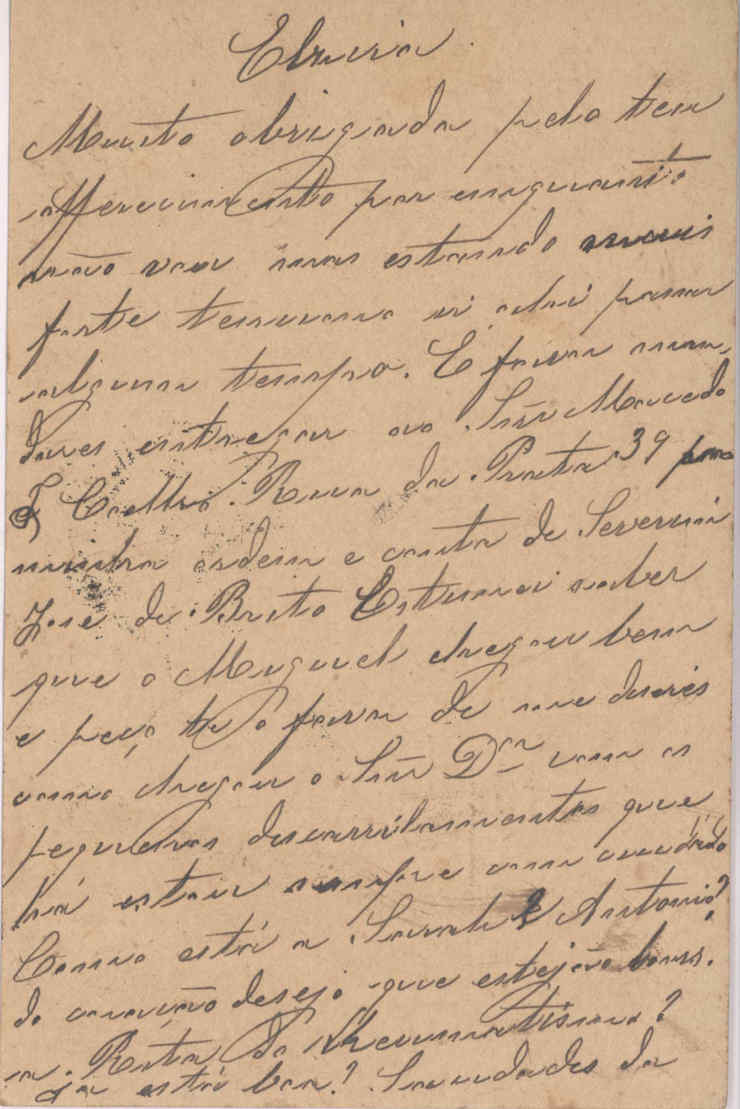 Elzira
Muito obrigada pelo teu
offerecimento por emquanto
não vou mas estando mais
forte tenciono ir ahi passar
algum tempo. E favor man-
dares entregar ao Snr Macedo
& Coelho. Rua da Prata 39 para
minha ordem e conta de Severim
José de Brito Estimei saber
que o Miguel chegou bem
e peço te o favor de me dizeres
como chegou o Snr Dr com os
pequenos descarrilamentos que
há estou sempre com cuidado
Como está a Sarah e Antonio?
do coração desejo que estejão bons.
a Rita do Rheumatismo?
já está boa? Saudades da